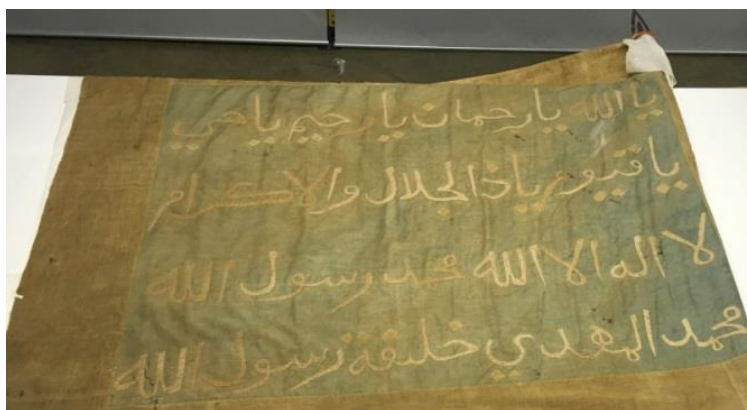 يا الله يا رحمان يا رحيم يا حي
يا قيوم يا ذا الجلال والاكرام
لا اله الا الله محمد رسول الله
محمد المهدي خليفة رسول الله